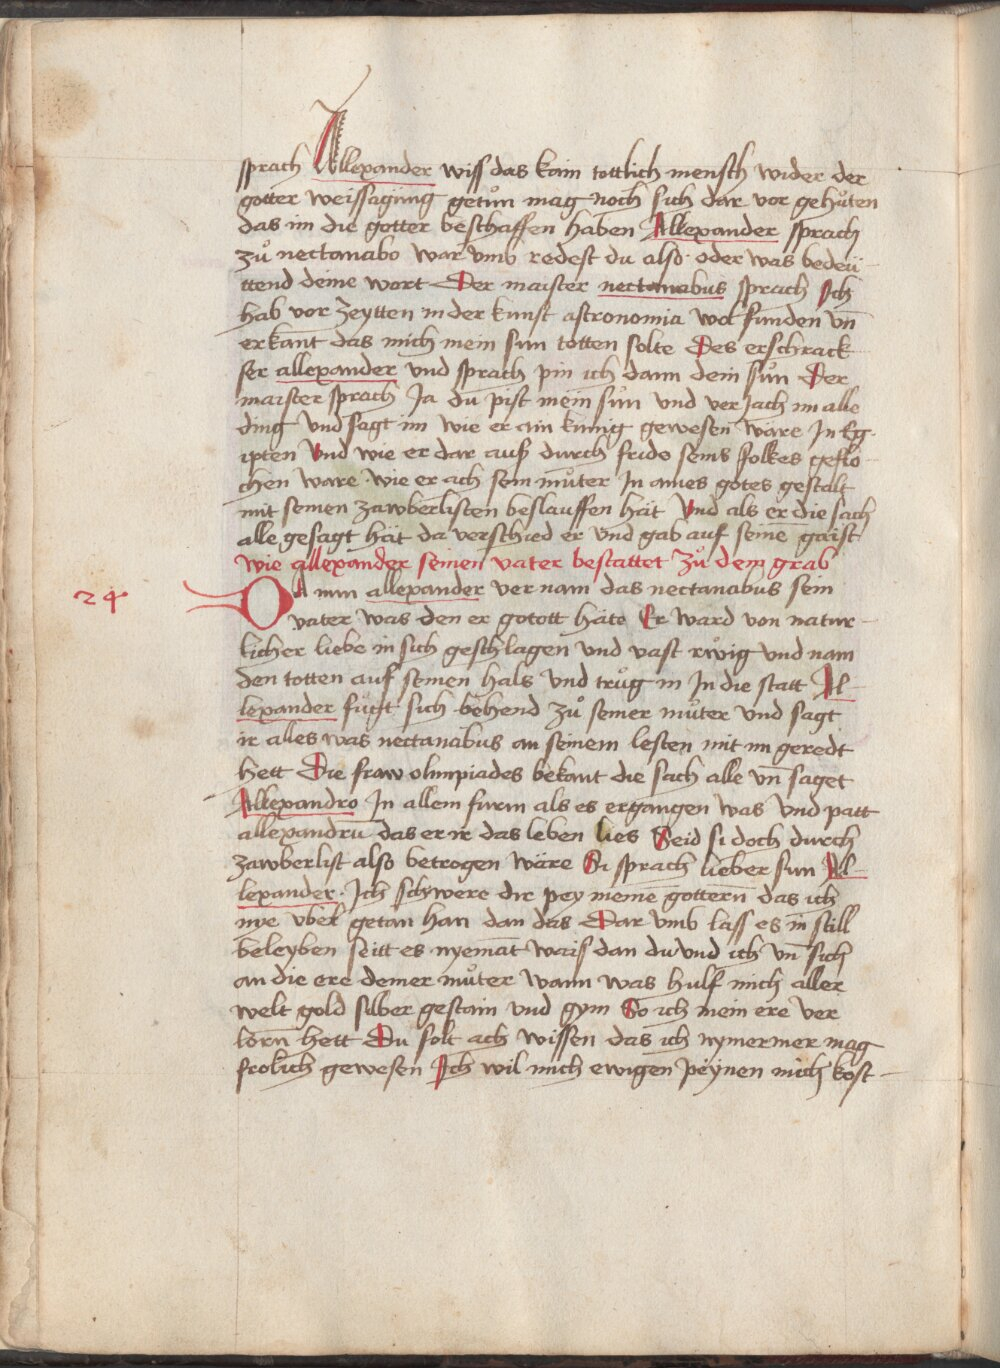 sprach Allexander wiss das kain tottlich mensch wider der
gotter weissagung getůn mag noch sich dar vor gehůten
das im die gotter beschaffen haben Allexander sprach
zů nectanabo war vmb redest du also · oder was bedeü
ttend deine wort Der maister nectanabus sprach Ich
hab vor zeytten in der kunst astronomia wol funden vn̄
erkant das mich mein sun totten solte Des erschrack
ser allexander vnd sprach pin ich dann dein sůn Der
maister sprach Ja du pist mein sůn vnd ver jach im alle
ding vnd sagt im wie er ain kunig gewesen wäre In Eg·
ipten Vnd wie er dar auß durch fride seins folkes geflo
chen ware · wie er ach sein můter In aines gotes gestalt
mit seinen zawberlisten beslauffen hät Vnd als er die sach
alle gesagt hät da verschied er vnd gab auf seinē gaist
wie allexander seinen vater bestattet zů dem grab
24 DA nun allexander ver nam das nectanabus sein
vater was den er gotott häte Er ward von natur
licher liebe in sich geschlagen vnd vast rwig vnd nam
den totten auf seinen hals vnd trůg in In die statt Al
lexander fůgt sich behend zů seiner můter vnd sagt
ir alles was nectanabus an seinem lesten mit im geredt
hett Die fraw olimpiades bekant die sach alle vn̄ saget
Allexandro In allem furm als es ergangen was vnd patt
allexandrū das er ir das leben lies Seid si doch durch
zawberlist also betrogen wäre Si sprach lieber sun Al
lexander · Ich schwere dir pey meinē gottern̄ das ich
nye vbel getan han dan das Dar vmb lass es in still
beleyben seitt es nyemāt wais dan du vnd ich vn̄ sich
an die ere deiner můter wann was hulf mich aller
welt gold silber gestain vnd gym So ich mein ere ver
lorn̄ hett Du solt ach wissen das ich nymermer mag
frolich gewesen Ich wil mich ewigen peynen mich kost